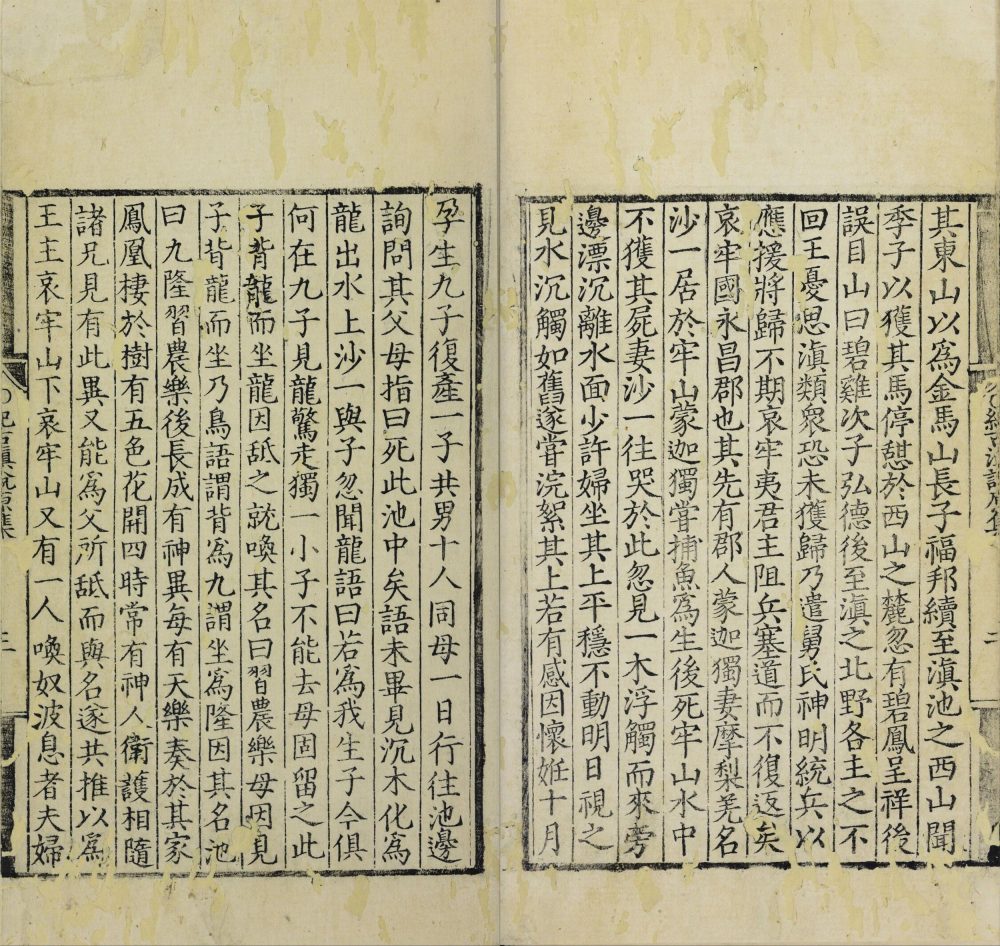 其東山以為金馬山長子福邦續至滇池之西山聞
季子以獲其馬停憇於西山之麓忽有碧鳳呈祥後
誤目山曰碧雞次子弘德後至滇之北野各主之不
回王憂思滇類衆恐未獲歸乃遣舅氏神明統兵以
應援將歸不期哀牢夷君主阻兵塞道而不復返矣
哀牢國永昌郡也其先有郡人蒙迦獨妻摩梨羌名
沙一居於牢山蒙迦獨甞捕魚為生後死牢山水中
不獲其屍妻沙一往哭於此忽見一木浮觸而來旁
邊漂沉離水面少許婦坐其上平穩不動明日視之
見水沉觸如舊遂甞浣絮其上若有感因懷妊十月
孕生九子復產一子共男十人同母一日行往池邊
詢問其父母指曰死此池中矣語未畢見沉木化為
龍出水上沙一與子忽聞龍語曰若為我生子今俱
何在九子見龍驚走獨一小子不能去母固留之此
子背龍而坐龍因舐之就喚其名曰習農樂母因見
子背龍而坐乃鳥語謂背為九謂坐為隆因其名池
曰九隆習農樂後長成有神異每有天樂奏於其家
鳳凰棲於樹有五色花開四時常有神人衛護相隨
諸兄見有此異又能為父所舐而與名遂共推以為
王主哀牢山下哀牢山又有一人喚奴波息者夫婦